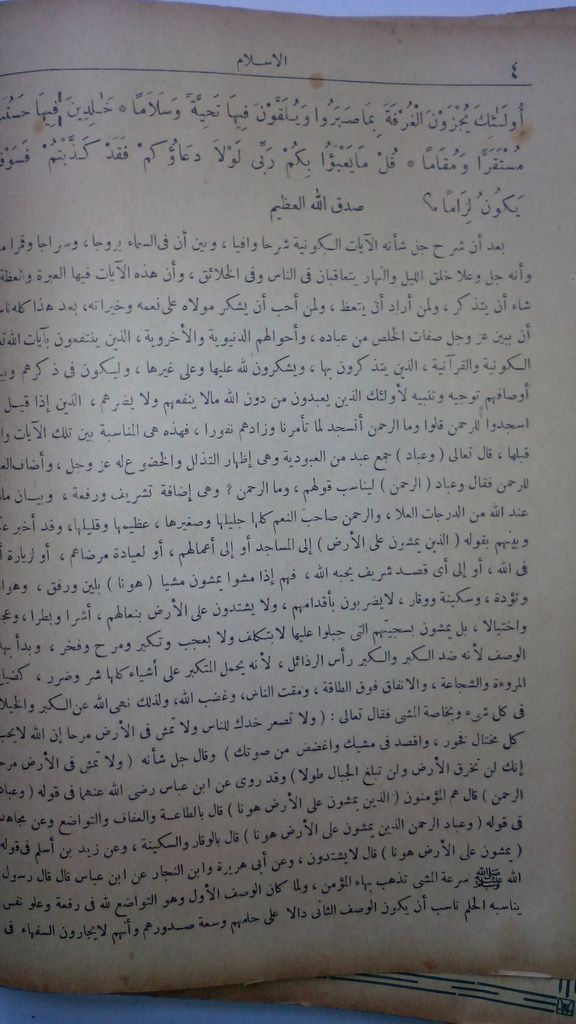 ٤
الاسلام
أُولَئِكَ يُجْزَوْنَ الْغُرْفَةَ بِمَا صَبَرُوا وَيُلَقَّوْنَ فِيهَا تَحِيَّةً وَسَلَامًا * خَالِدِينَ فِيهَا حَسُنَتْ
مُسْتَقَرًّا وَمُقَامًا * قُلْ مَا يَعْبَؤُا بِكُمْ رَبِّى لَوْلَا دعَاؤُكُمْ فَقَدْ كَذَّبْتُمْ فَسَوْفَ
يَكُونُ لِزَامًا ؟ صدق الله العظيم
بعد أن شرح جل شأنه الآيات الكونية شرحا وافيا ، وبين أن فى السماء بروجا ، وسراجا وقمرا
وأنه جل وعلا خلق الليل والنهار يتعاقبان فى الناس وفى الخلائق ، وأن هذه الآيات فيها العبرة والعظة
شاء أن يتذكر ، ولمن أراد أن يتعظ ، ولمن أحب أن يشكر مولاه على نعمه وخيراته، بعد هذا كله
أن يبين عز وجل صفات الخلص من عباده ، وأحوالهم الدنيوية والأخروية ، الذين ينتفعون بآيات الله
الكونية والقرآنية ، الذين يتذكرون بها ، ويشكرون لله عليها وعلى غيرها ، وليكون فى ذكرهم
أوصافهم توجيه وتنبيه لأولئك الذين يعبدون من دون الله مالا ينفعهم ولا يضرهم ، الذين إذا قيل
اسجدوا للرحمن قالوا وما الرحمن أنسجد لما تأمرنا وزادهم نفورا ، فهذه هى المناسبة بين تلك الآيات
قبلها ، قال تعالى ( وعباد ) جمع عبد من العبودية وهى إظهار التذلل والخضوع له عز وجل ، وأضاف
للرحمن فقال وعباد ( الرحمن ) ليناسب قولهم ، وما الرحمن ? وهى إضافة تشريف ورفعة ، وبيان
عند الله من الدرجات العلا ، والرحمن صاحب النعم كلها جليلها وصغيرها ، عظيمها وقليلها، وقد أخبر
وبينهم بقوله ( الذين يمشون على الأرض ) إلى المساجد أو إلى أعمالهم ، أو لعيادة مرضاهم ، أو لزيارة
فى الله ، أو إلى أى قصد شريف يحبه الله ، فهم إذا مشوا يمشون مشيا ( هونا ) بلين ورفق ،
وتؤدة ، وسكينة ووقار ، لايضربون بأقدامهم ، ولا يشتدون على الأرض بنعالهم ، أشرا وبطرا،
واختيالا ، بل يمشون بسجيتهم التى جبلوا عليها لا بتكلف ولا بعجب وتكبر ومرح وفخر ، وبدأ
الوصف لأنه ضد الكبر والكبر رأس الرذائل ، لأنه يحمل المتكبر على أشياء كلها شر وضرر ،
المروءة والشجاعة ، والانفاق فوق الطاقة ، ومقت الناس، وغضب الله، ولذلك نهى الله عن الكبر والخيلاء
فى كل شىء وبخاصة المشى فقال تعالى : ( ولا تصعر خدك للناس ولا تمش فى الأرض مرحا إن الله لا يحب
كل مختال فخور ، واقصد فى مشيك واغضض من صوتك ) وقال جل شأنه ( ولا تمش فى الأرض مرحا
إنك لن تخرق الأرض ولن تبلغ الجبال طولا ) وقد روى عن ابن عباس رضى الله عنهما فى قوله ( وعباد
الرحمن ) قال هم المؤمنون ( الذين يمشون على الأرض هونا ) قال بالطاعة والعفاف والتواضع وعن مجاهد
فى قوله ( وعباد الرحمن الذين يمشون على الأرض هونا ) قال بالوقار والسكينة ، وعن زيد بن أسلم فى قوله
( يمشون على الأرض هونا ) قال لايشتدون ، وعن أبى هريرة وابن النجار عن ابن عباس قال قال رسول
الله ﷺ سرعة المشى تذهب بهاء المؤمن ، ولما كان الوصف الأول وهو التواضع لله فى رفعة وعلو نفس
يناسبه الحلم ناسب أن يكون الوصف الثانى دالا على حلمهم وسعة صدورهم وأنهم لايجارون السفهاء فى